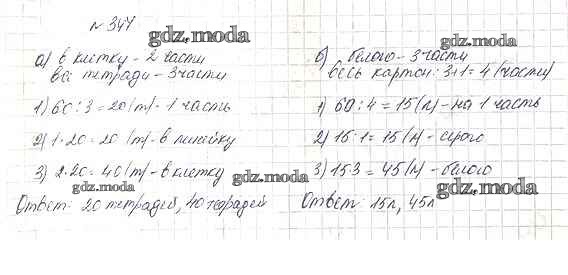 № 347
gdz.moda
а) в клетку - 2 части
все тетради - 3 части
1) 60 : 3 = 20 (т) - 1 часть
2) 1·20 = 20 (т) - в линейку
3) 2·20 = 40 (т) - в клетку
gdz.moda
Ответ: 20 тетрадей, 40 тетрадей
gdz.moda
б) белого - 3 части
весь картон: 3+1 = 4 (части)
1) 60 : 4 = 15 (л) - на 1 часть
2) 15·1 = 15 (л) - серого
3) 15·3 = 45 (л) - белого
gdz.moda
gdz.moda
Ответ: 15л, 45л